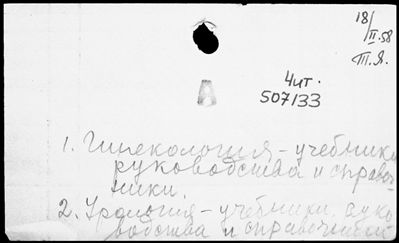 18/II.58
Т.Я.
Чит.
507133
1. Гинекология - учебники
руководства и справоч-
ники.
2. Урология - учебники, руко
водства и справочники